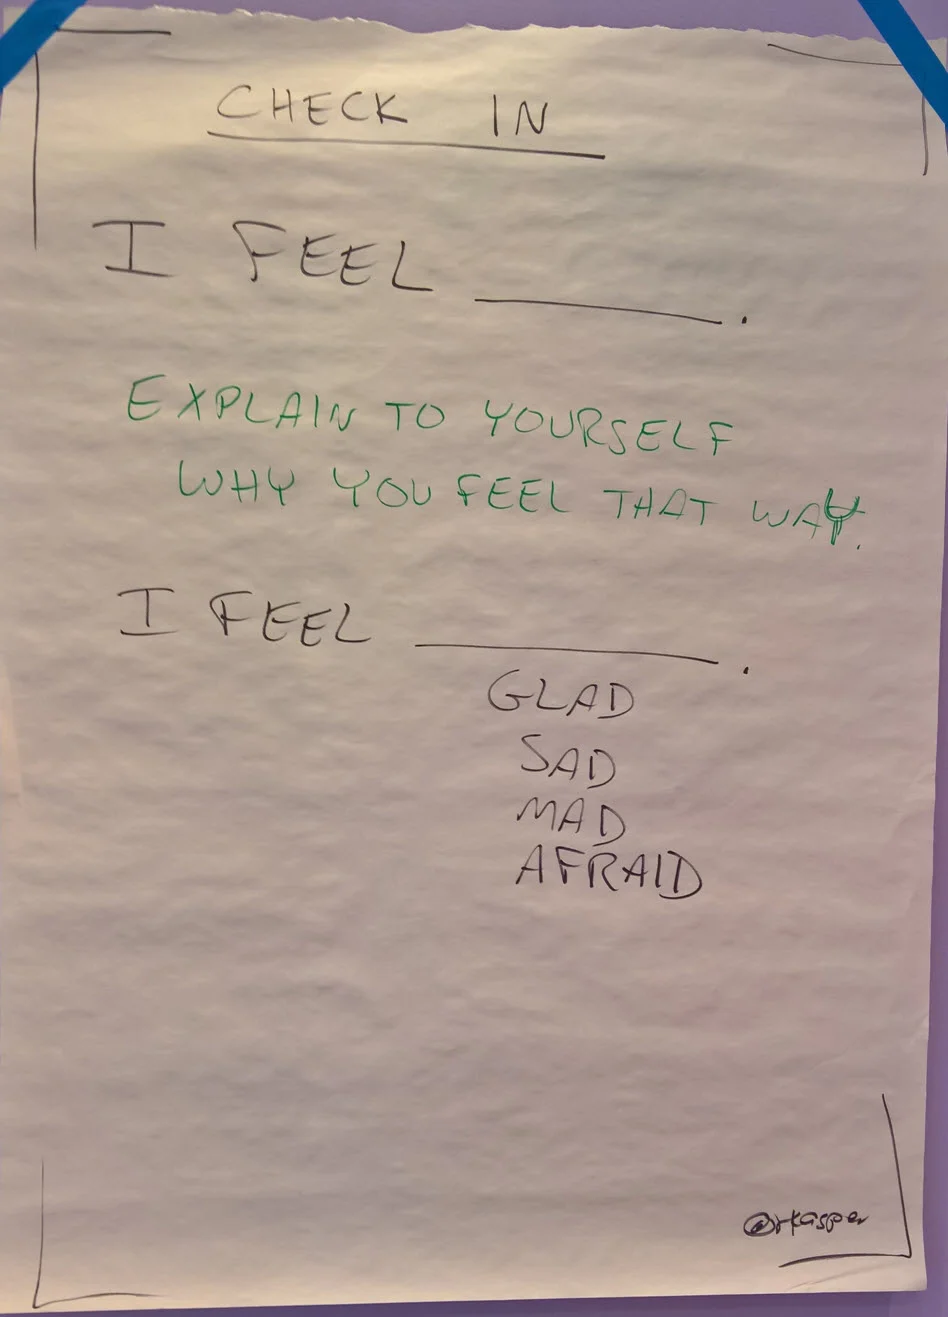 CHECK IN
I FEEL ________.
EXPLAIN TO YOURSELF
WHY YOU FEEL THAT WAY.
I FEEL ________.
GLAD
SAD
MAD
AFRAID
@rkasper